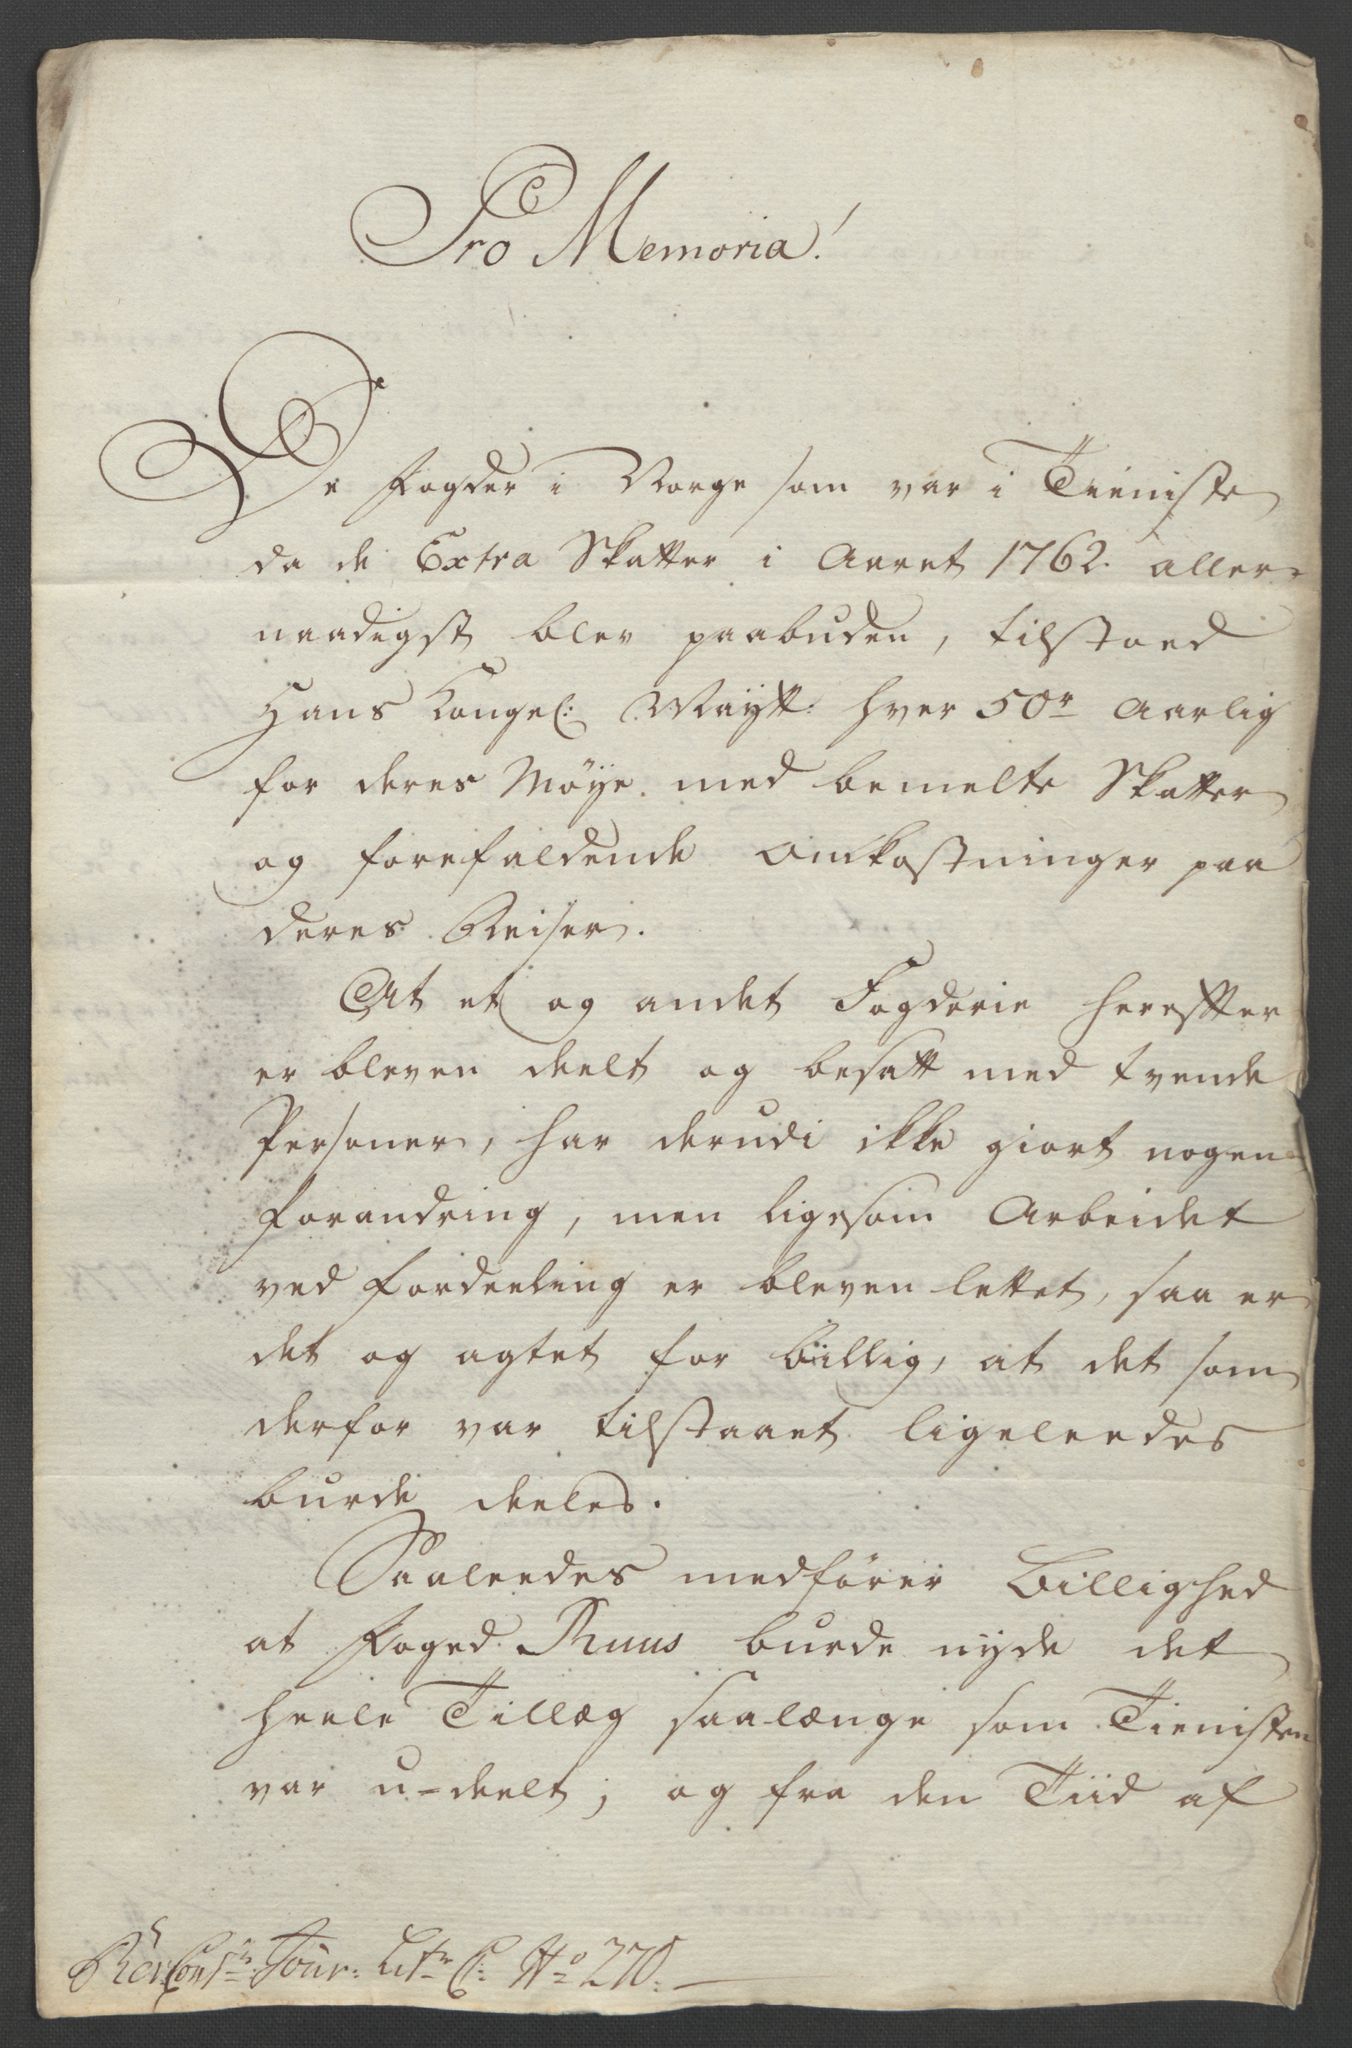 Pro Memoria!
De Fogder i Norge som var i Tieniste
da de Extra Skatter i Aaret 1762. aller-
naadigst blev paabuden, tilstoed
Hans Kongel: Maytt: hver 50r Aarlig
for deres Møye med bemelte Skatter
og forefaldende Omkostninger paa
deres Reiser.
At et og andet Fogderie herefter
er bleven deelt og besatt med tvende
Personer, har derudi ikke giort nogen
forandring, men ligesom Arbeidet
ved fordeeling er bleven lettet, saa er
det og agtet for billig, at det som
derfor var tilstaaet ligeleedes
burde deeles.
Saaleedes medfører Billighed
at Foged Ruus burde nyde det
heele Tillæg saalænge som Tienisten
var u-deelt; og fra den Tiid af
Jour: Litr C: No 270.